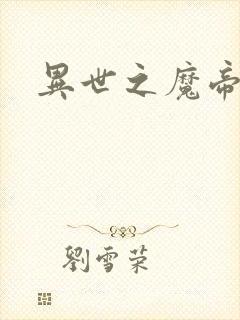 異世之魔帝
劉雪荣